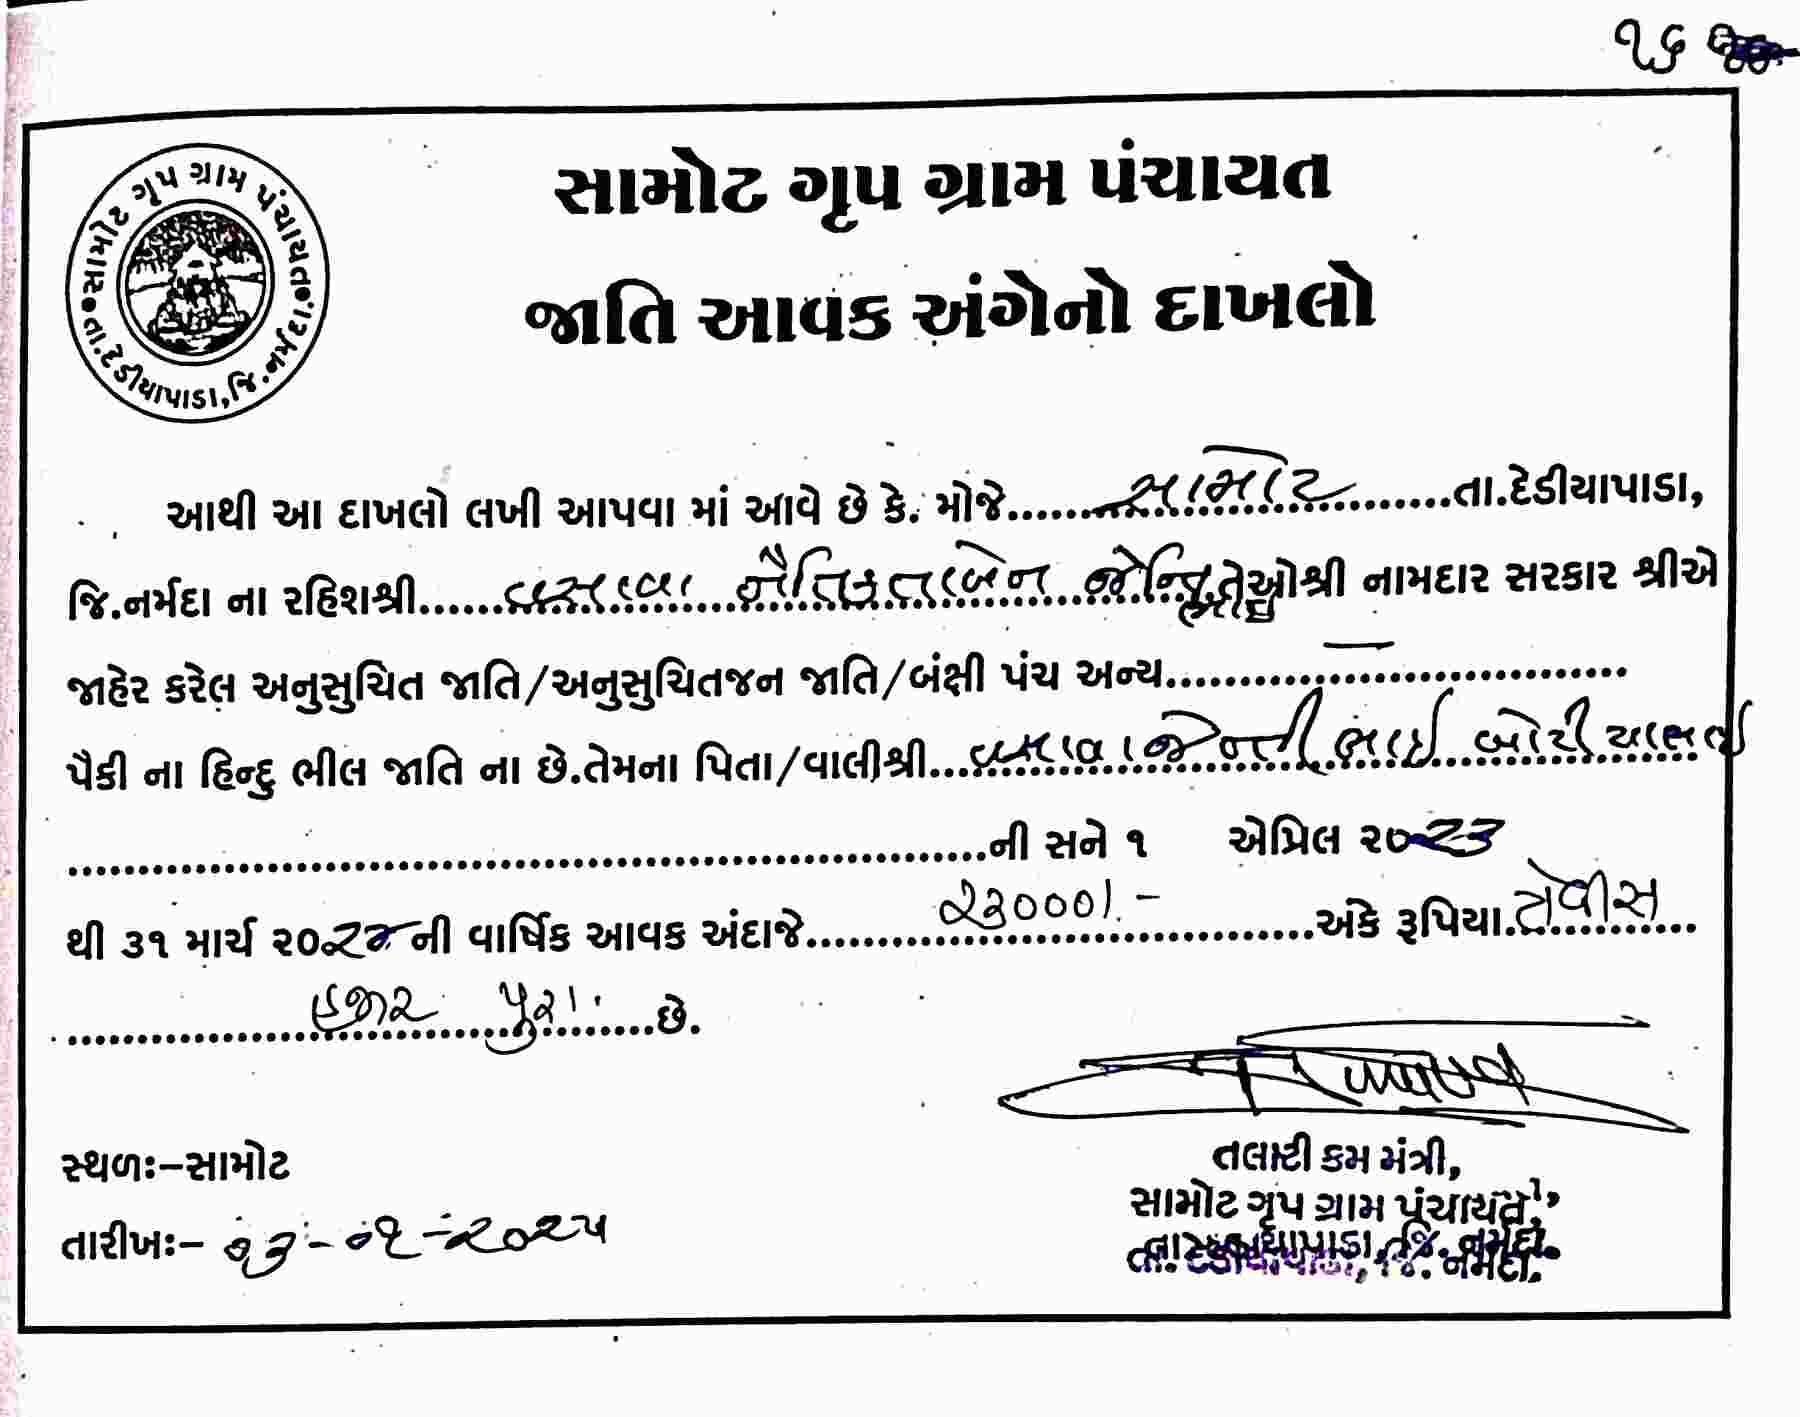 ૧૬
સામોટ ગૃપ ગ્રામ પંચાયત
જાતિ આવક અંગેનો દાખલો
સામોટ ગૃપ ગ્રામ પંચાયત
તા.દેડીયાપાડા,જિ.નર્મદા.
આથી આ દાખલો લખી આપવા માં આવે છે કે. મોજે......સામોટ......તા.દેડીયાપાડા,
જિ.નર્મદા ના રહિશશ્રી......વસાવા નૈતિકતાબેન જેન્તિ.તેઓશ્રી નામદાર સરકાર શ્રીએ
ભાઇ
જાહેર કરેલ અનુસુચિત જાતિ/અનુસુચિતજન જાતિ/બંક્ષી પંચ અન્ય......—......
પૈકી ના હિન્દુ ભીલ જાતિ ના છે.તેમના પિતા/વાલીશ્રી...વસાવા જેન્તીભાઇ
......ની સને ૧ એપ્રિલ ૨૦૨૩
થી ૩૧ માર્ચ ૨૦૨૪ ની વાર્ષિક આવક અંદાજે......૨૩૦૦૦/.-......અંકે રૂપિયા.ત્રેવીસ
......હજાર પુરા......છે.
સ્થળઃ–સામોટ
તારીખઃ– ૦૩-૦૧-૨૦૨૫
તલાટી કમ મંત્રી,
સામોટ ગૃપ ગ્રામ પંચાયત,
તા. દેડીયાપાડા, જિ. નર્મદા.